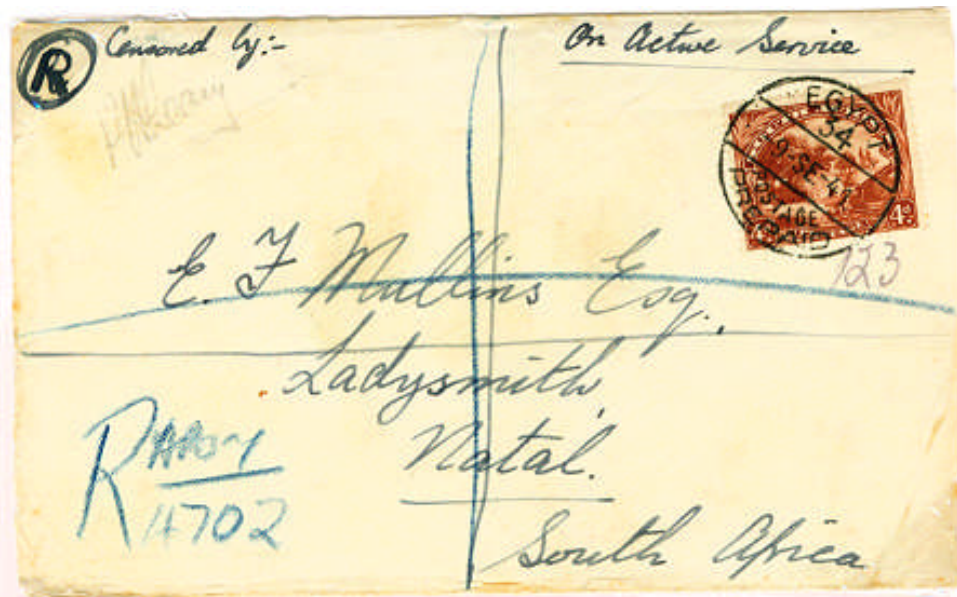 R Censored by:-
On Active Service
EGYPT
34
9-SE-41
POSTAGE
PREPAID
4D
123
E. F Mullins Esq.
Ladysmith,
Natal.
South Africa
R
4702